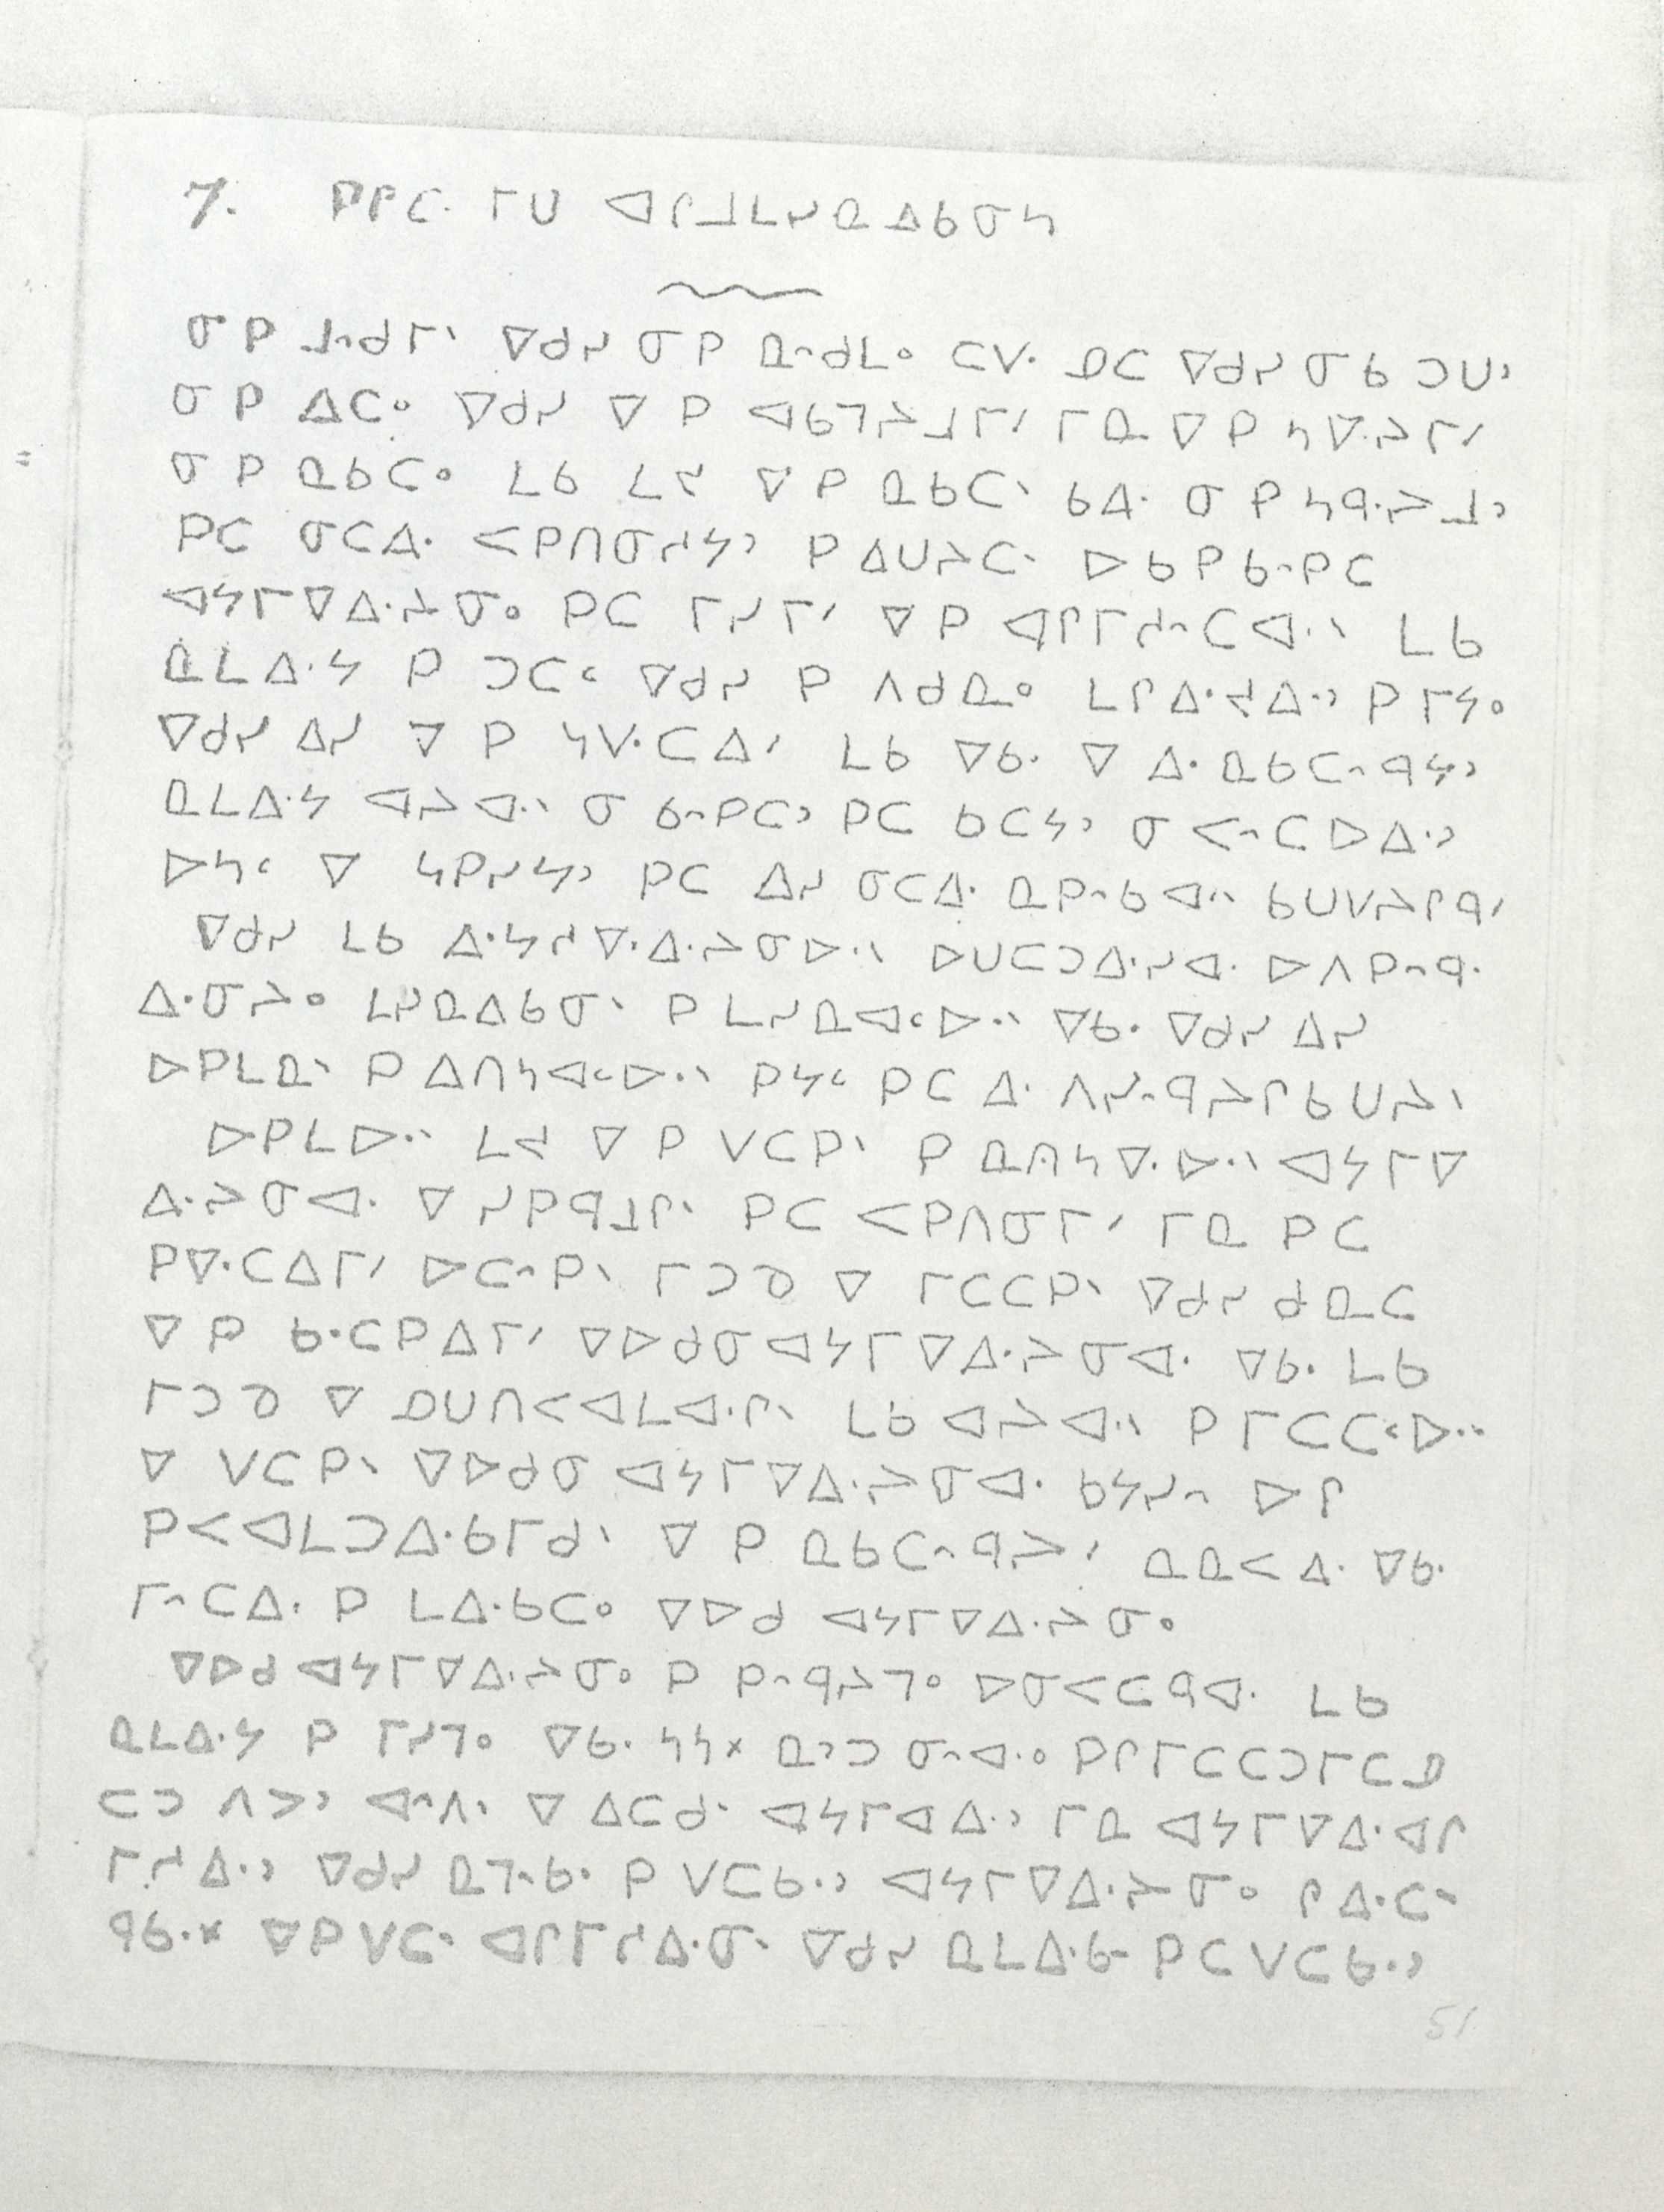 7. ᑭᑭᑕ ᒥᑌ ᐊᒋᒧᒪᓯᓇᐃᑲᓂᓴ
ᓂ ᑭ ᒧᐢᑯᒥᐠ ᐁᑯᓯ ᓂ ᑭ ᓇᐢᑯᒪᐤ ᑕᐯᐧ ᑭᑕ ᐁᑯᓯ ᓂ ᑲ ᑐᑌᐣ
ᓂ ᑭ ᐃᑕᐤ ᐁᑯᓯ ᐁ ᑭ ᐊᑲᔦᒧᒥᐟ ᒥᓇ ᐁ ᑭ ᓴᐁᐧᔨᒥᐟ
ᓂ ᑭ ᓇᑲᑕᐤ ᒪᑲ ᒪᔭ ᐁ ᑭ ᓇᑲᑕᐠ ᑲᐃᐧ ᓂ ᑭ ᓴᑫᐧᔨᒧᐣ
ᑭᑕ ᓂᑕᐃᐧ ᐸᑭᑎᓂᓱᔭᐣ ᑭ ᐃᑌᔨᑕᐠ ᐅᑲᑭᑲᐢᑭᑕ
ᐊᔭᒥᐁᐃᐧᔨᓂᐤ ᑭᑕ ᒥᓯᒥᐟ ᐁ ᑭ ᐊᒋᒥᓱᐢᑕᐊᐧᐠ ᒪᑲ
ᓇᒪᐃᐧᔭ ᑭ ᑐᑕᑊ ᐁᑯᓯ ᑭ ᐱᑯᓇᐤ ᒪᒋᐃᐧᔭᐃᐧᐣ ᑭ ᒥᔭᐤ
ᐁᑯᓯ ᐃᓯ ᐁ ᑭ ᓴᐯᐧᑕᐃᐟ ᒪᑲ ᐁᑲᐧ ᐁ ᐃᐧ ᓇᑲᑕᐢᑫᔭᐣ
ᓇᒪᐃᐧᔭ ᐊᔨᐊᐧᐠ ᓂ ᑲᐢᑭᑕᐣ ᑭᑕ ᑲᑕᔭᐣ ᓂ ᐸᐢᑕᐅᐃᐧᐣ
ᐅᓴᑊ ᐁ ᓴᑭᓯᔭᐣ ᑭᑕ ᐃᓯ ᓂᑕᐃᐧ ᓇᑭᐢᑲᐊᐧᐠ ᑲᑌᐯᔨᒋᑫᐟ
ᐁᑯᓯ ᒪᑲ ᐃᐧᔭᓱᐁᐧᐃᐧᔨᓂᐅᐧᐠ ᐅᑌᑕᑐᐃᐧᓯᐊᐧ ᐅᐱᑭᐢᑫᐧ
ᐃᐧᓂᔨᐤ ᒪᓯᓇᐃᑲᓂᐠ ᑭ ᒪᓯᓇᐊᑊᐅᐧᐠ ᐁᑲᐧ ᐁᑯᓯ ᐃᓯ
ᐅᑭᒪᓇᐠ ᑭ ᐃᑎᓴᐊᑊᐅᐧᐠ ᑭᔭᑊ ᑭᑕ ᐃᐧ ᐱᓯᐢᑫᔨᒋᑲᑌᔨᐠ
ᐅᑭᒪᐅᐧᐠ ᒪᔭ ᐁ ᑭ ᐯᑕᑭᐠ ᑭ ᓇᑎᓴᐁᐧᐅᐧᐠ ᐊᔭᒥᐁ
ᐃᐧᔨᓂᐊᐧ ᐁ ᓯᑭᑫᒧᒋᐠ ᑭᑕ ᐸᑭᑎᓂᒥᐟ ᒥᓇ ᑭᑕ
ᑭᐁᐧᑕᐃᒥᐟ ᐅᑕᐢᑭᐠ ᒥᑐᓂ ᐁ ᒥᑕᑕᑭᐠ ᐁᑯᓯ ᑯᓇᑕ
ᐁ ᑭ ᑲᐧᑕᑭᐃᒥᐟ ᐁᐅᑯᓂ ᐊᔭᒥᐁᐃᐧᔨᓂᐊᐧ ᐁᑲᐧ ᒪᑲ
ᒥᑐᓂ ᐁ ᑭᑌᑎᐸᐊᒪᐊᐧᒋᐠ ᒪᑲ ᐊᔨᐊᐧᐠ ᑭ ᒥᑕᑕᑊᐅᐧᐠ
ᐁ ᐯᑕᑭᐠ ᐁᐅᑯᓂ ᐊᔭᒥᐁᐃᐧᔨᓂᐊᐧ ᑲᔭᓯᐢ ᐅᒋ
ᑭᐸᐊᒪᑐᐃᐧᑲᒥᑯᐠ ᐁ ᑭ ᓇᑲᑕᐢᑫᔨᐟ ᓇᓇᐸᐃᐧ ᐁᑲᐧ
ᒥᐢᑕᐃᐧ ᑭ ᒪᐃᐧᑲᑕᐤ ᐁᐅᑯ ᐊᔭᒥᐁᐃᐧᔨᓂᐤ
ᐁᐅᑯ ᐊᔭᒥᐁᐃᐧᔨᓂᐤ ᑭ ᑭᐢᑫᔨᒣᐤ ᐅᓂᐸᑕᑫᐊᐧ ᒪᑲ
ᓇᒪᐃᐧᔭ ᑭ ᒥᓯᒣᐤ ᐁᑲᐧ ᓴᓴ᙮ ᓇᐣᑐ ᓂᐢᐊᐧᐤ ᑭᒋᒥᑕᑕᑐᒥᑕᓄ
ᑕᑐ ᐱᐳᐣ ᐊᐢᐱᐣ ᐁ ᐃᑕᑯᐠ ᐊᔭᒥᐊᐃᐧᐣ ᒥᓇ ᐊᔭᒥᐁᐃᐧᐊᒋ
ᒥᓱᐃᐧᐣ ᐁᑯᓯ ᓇᒣᐢᑲᐧ ᑭ ᐯᑕᑲᐧᐣ ᐊᔭᒥᐁᐃᐧᔨᓂᐤ ᒋ ᐃᐧᑕᐠ
ᑫᑲᐧ᙮ ᐁᑭ ᐯᑕᐠ ᐊᒋᒥᓱᐃᐧᓂᐠ ᐁᑯᓯ ᓇᒪᐃᐧᑲᐨ ᑭᑕ ᐯᑕᑲᐧᐣ
51